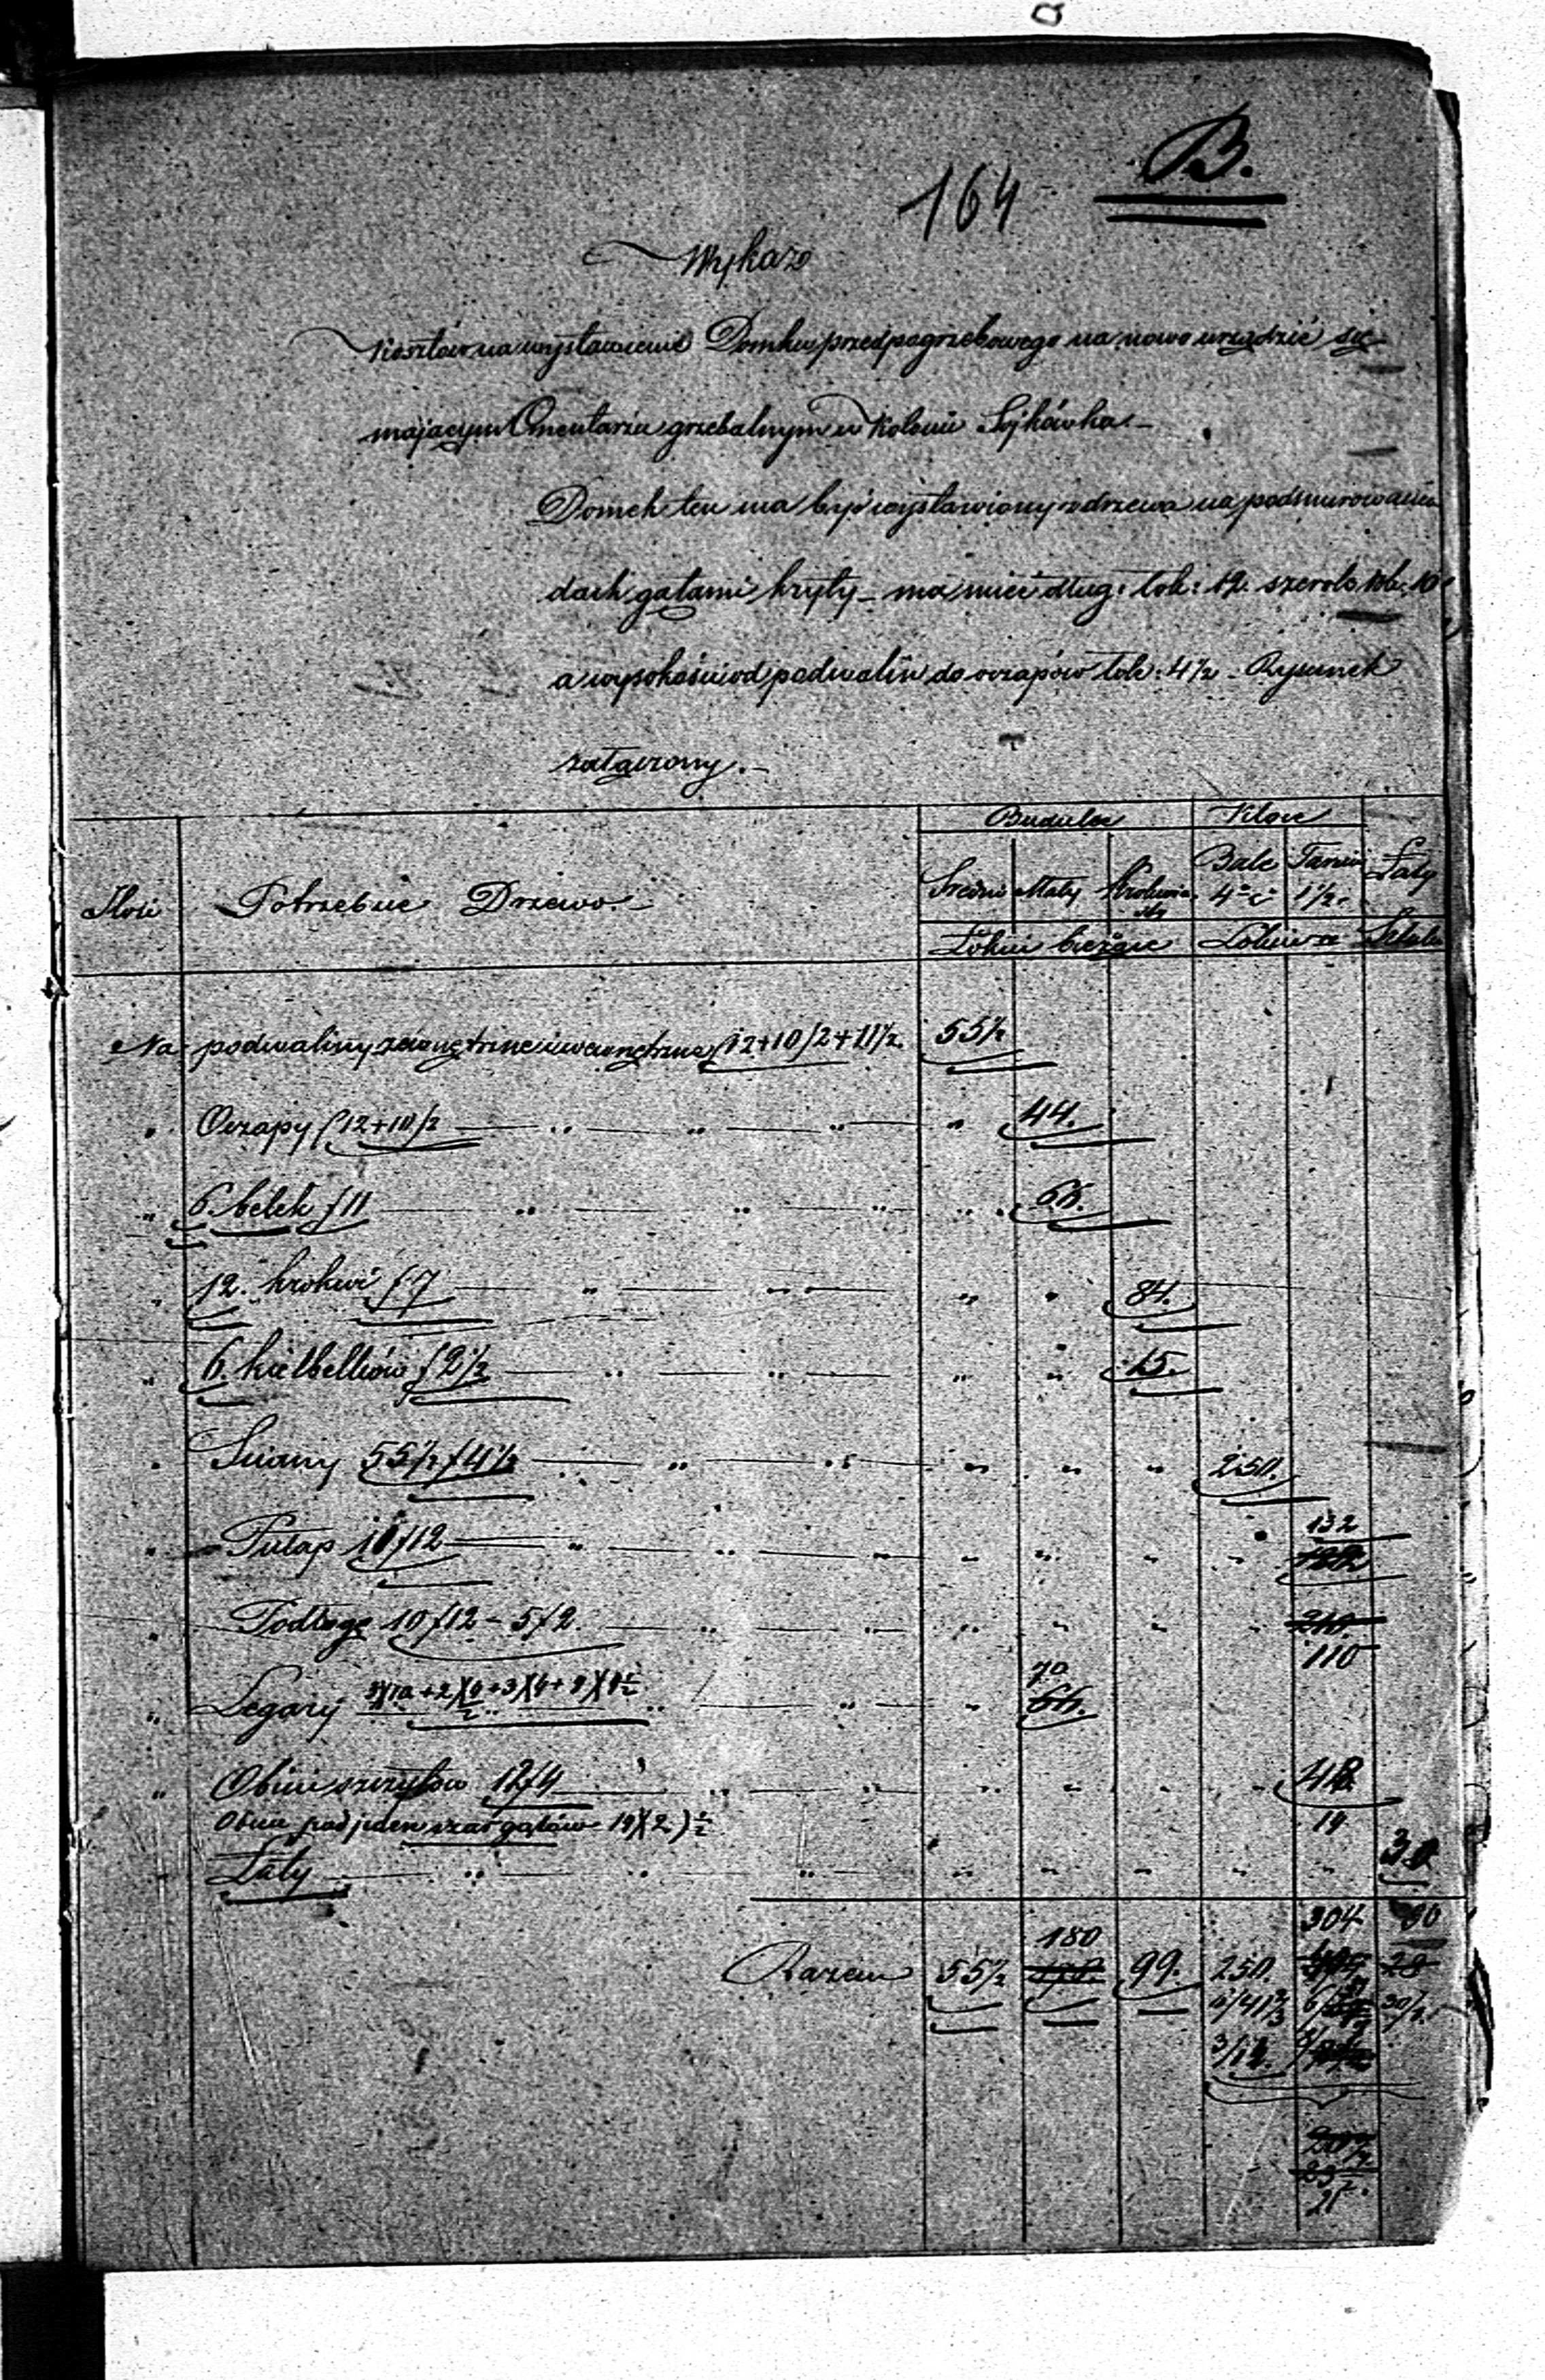 B.
164
Wykaz
Kosztów na wystawienie Domku przedpogrzebowego na nowo urządzić się
mającym Cmentarzu grzebalnym w Kolonii Sojkówka.—
Domek ten ma być wystawiony z drzewa na podmurowaniu
dach gątami kryty — ma mieć dług: łok: 12. szerok: łok: 10
a wysokości od podwalin do oczapów łok: 4½ — Rysunek
załączony.—
Budulec Kloce
Ilość Potrzebne Drzewo.— Średni Mały Bale 4 Tarcic 1½ Łaty
Łokci bieżące Łokcie Sztuk
Na podwaliny zewnętrzne i wewnętrzne (12+10/2+11½ 55½
" Oczapy (12+10/2 " 44.
" 6. belek / 11 " 66.
" 12. krokwi / 7 " 84.
" 6. / 2½ " 15.
" Ściany 55½ / 4½ " 250.
" Pułap 11/12 " 132
" Podłogę 10/12 – 5/2. " 210.
110
" Legary 70
66.
" Obicie szczytów 12/4 " 48
Obicie pod jeden szar gątów 19)(2)½ 19
" Łaty " 30
304 30
180
Razem 55½ 99. 250. 28
3/12.
25
21